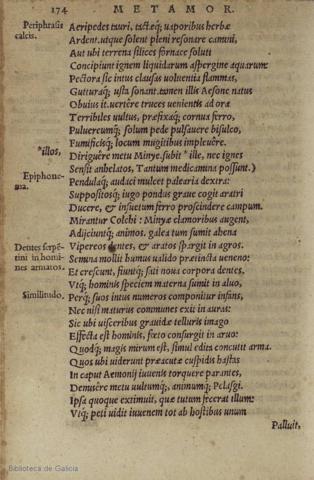 174 METAMOR.
Periphrasis calcis.
Aeripedes tauri, tactæq; uaporibus herbæ
Ardent. utque solent pleni resonare camini,
Aut ubi terrena silices fornace soluti
Concipiunt ignem liquidarum aspergine aquarum:
Pectora sic intus clausas uoluentia flammas,
Gutturaq; usta sonant. tamen illis Aesone natus
Obuius it. uertêre truces uenientis ad ora
Terribiles uultus, præfixaq; cornua ferro,
Puluereumq; solum pede pulsauere bisulco,
Fumificisq; locum mugitibus impleuêre.
*illos,
Diriguêre metu Minyæ. subit *ille, nec ignes
Sensit anhelatos, Tantum medicamina possunt.)
Epiphonema.
Pendulaq; audaci mulcet palearia dextra:
Suppositosq; iugo pondus graue cogit aratri
Ducere, & insuetum ferro proscindere campum.
Mirantur Colchi: Minyæ clamoribus augent,
Adijciuntq; animos. galea tum sumit ahena
Dentes serpētini in homines armatos.
Vipereos dentes, & aratos spargit in agros.
Semina mollit humus ualido prætincta ueneno:
Et crescunt, fiuntq; sati noua corpora dentes,
Similitudo.
Vtq; hominis speciem materna sumit in aluo,
Perq; suos intus numeros componitur infans,
Nec nisi maturus communes exit in auras:
Sic ubi uisceribus grauidæ telluris imago
Effecta est hominis, fœto consurgit in aruo:
Quodq; magis mirum est, simul edita concutit arma.
Quos ubi uiderunt præacutæ cuspidis hastas
In caput Aemonij iuuenis torquere parantes,
Demisêre metu uultumq;, animumq; Pelasgi.
Ipsa quoque extimuit, quæ tutum fecerat illum:
Vtq; peti uidit iuuenem tot ab hostibus unum
Palluit,
Biblioteca de Galicia